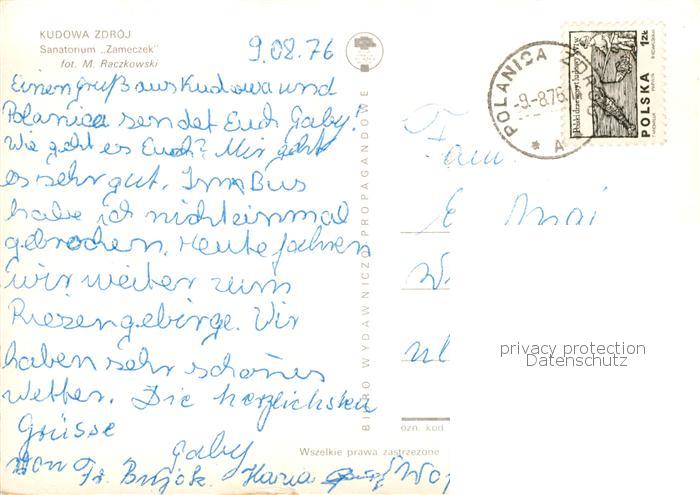 KUDOWA ZDRÓJ
Sanatorium „Zameczek"
fot. M. Raczkowski
9.08.76
Einen gruß aus Kudowa und
Polanica sendet Euch Gaby!
Wie geht es Euch? Mir geht
es sehr gut. Im Bus
habe ich nicht einmal
gebrochen. Heute fahren
wir weiter zum
Riesengebirge. Wir
haben sehr schönes
Wetter. Die herzlichsten
Grüsse
Gaby
von Fr. Brijok. Maria
BIURO WYDAWNICZO-PROPAGANDOWE
Wszelkie prawa zastrzeżone
POLANICA ZDRÓJ
-9.-8.76
* A
POLSKA
1 ZŁ
Fam.
E
ul
ozn. kod
privacy protection
Datenschutz